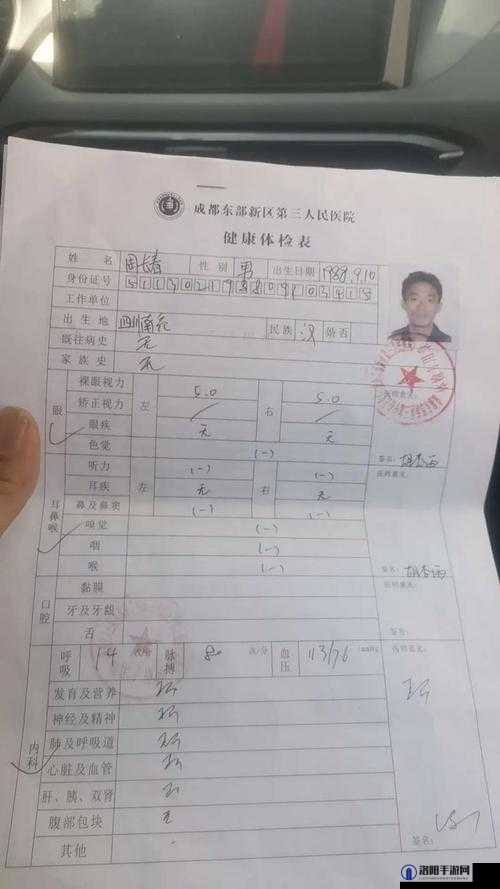 成都东部新区第三人民医院
健康体检表
姓名 周长春 性别 男 出生日期 1988.9.10
身份证号
工作单位
出生地 四川南充 民族 汉 婚否
既往病史 无
家族史 无
眼 裸眼视力 左 5.0 右 5.0 医师意见
矫正视力 / /
眼疾 无 无
色觉 (-) 签名:
耳鼻喉 听力 左 (-) 右 (-) 医师意见
耳疾 无 无
鼻及鼻窦 (-) (-)
嗅觉 (-)
咽 (-)
喉 (-) 签名:
口腔 黏膜 医师意见
牙及牙龈
舌 签名:
内科 呼吸 14 次/分 脉搏 80 次/分 血压 113/76 mmHg 医师意见
发育及营养
神经及精神
肺及呼吸道
心脏及血管
肝、胰、双肾
腹部包块 无
其他 签名:
洛阳手游网